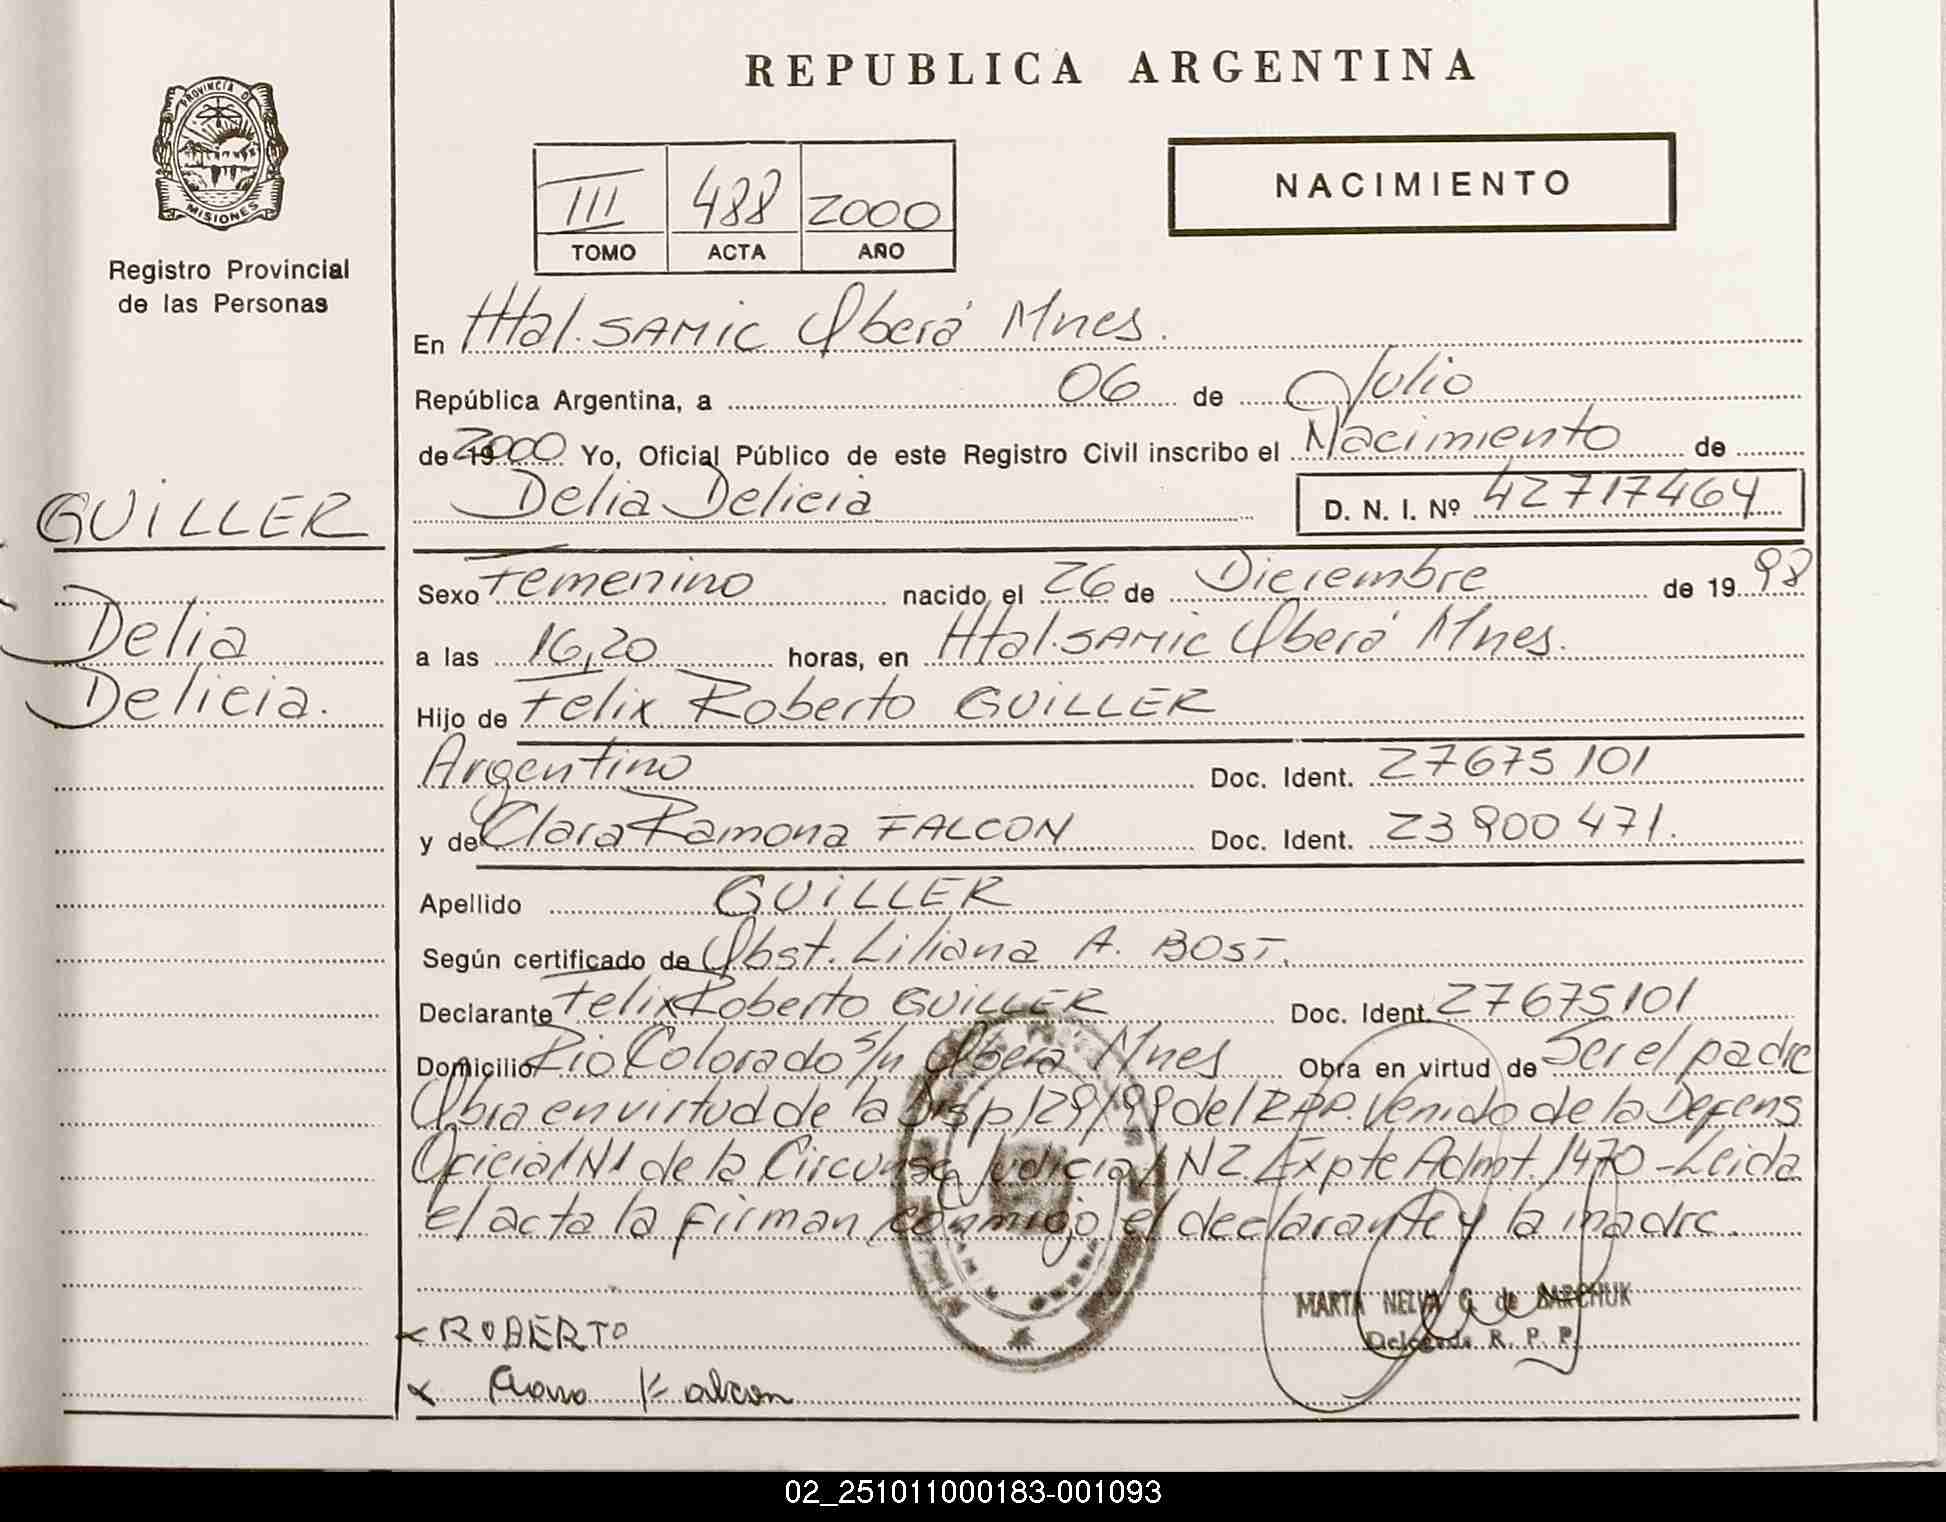 REPUBLICA ARGENTINA
PROVINCIA DE
MISIONES
Registro Provincial
de las Personas
III 488 2000
TOMO ACTA AÑO
NACIMIENTO
En Htal. SAMIC Oberá Mnes.
República Argentina, a 06 de Julio
de 19 2000 Yo, Oficial Público de este Registro Civil inscribo el Nacimiento de
Delia Delicia D. N. I. Nº 42717464
GUILLER
Delia
Delicia.
Sexo Femenino nacido el 26 de Diciembre de 19 98
a las 16,20 horas, en Htal. SAMIC Oberá Mnes.
Hijo de Felix Roberto GUILLER
Argentino Doc. Ident. 27675101
y de Clara Ramona FALCON Doc. Ident. 23900471.
Apellido GUILLER
Según certificado de Obst. Liliana A. BOST.
Declarante Felix Roberto GUILLER Doc. Ident. 27675101
Domicilio Rio Colorado s/n Oberá Mnes Obra en virtud de Ser el padre
Obra en virtud de la Disp 129/99 del RPP. Venido de la Defens
Oficial N1 de la Circunsc Judicial N2. Expte Admt. 1470 - Leida
el acta la firman conmigo el declarante y la madre.
MARTA NELVA G. de SARCHUK
Delegada R. P. P.
x ROBERTO
x Falcon
02_251011000183-001093